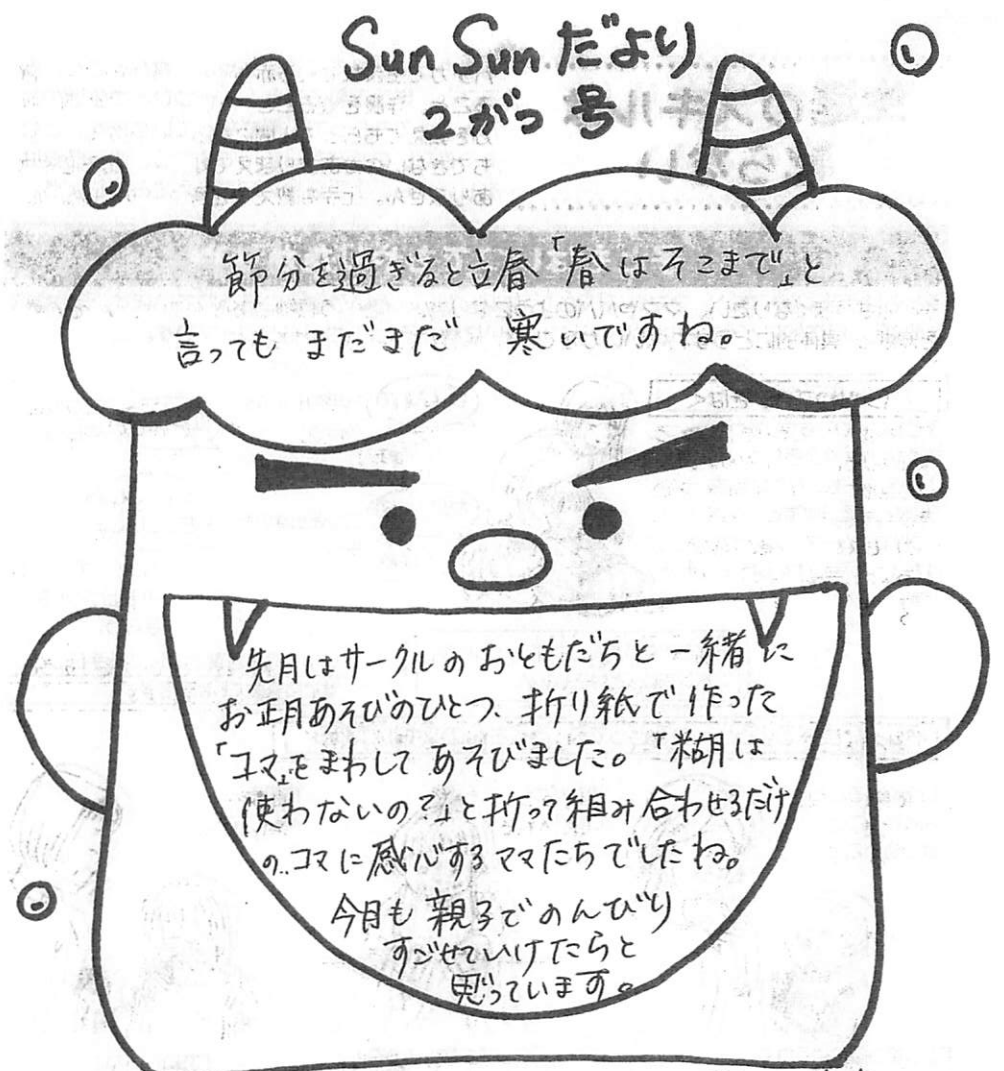 Sun Sun だより
2がつ号
節分を過ぎると立春「春はそこまで」と
言ってもまだまだ 寒いですね。
先月はサークルのおともだちと一緒に
お正月あそびのひとつ、折り紙で作った
「コマ」をまわしてあそびました。「糊は
使わないの?」と折って組み合わせるだけ
の..コマに感心するママたちでしたね。
今月も親子でのんびり
すごせていけたらと
思っています。